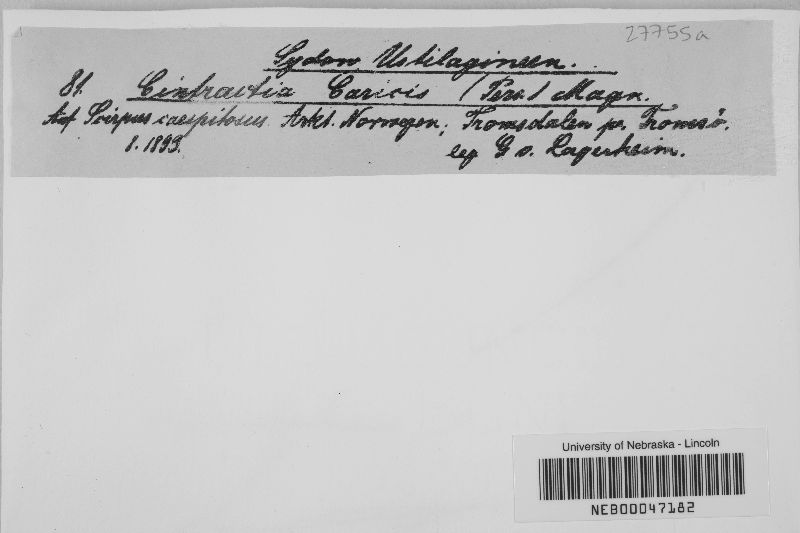 27755a
Sydow Ustilagineen.
81. Cintractia Caricis (Pers.) Magn.
Auf Scirpus caespitosus. Arkt. Norwegen, Tromsdalen pr. Tromsö.
8. 1893.
leg G v. Lagerheim.
University of Nebraska - Lincoln
NEB00047182